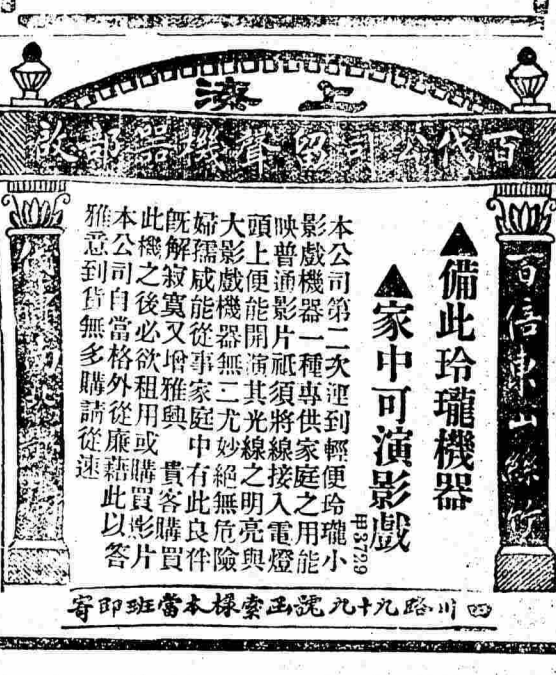 上海
百代公司留聲機器部啟
百倍東山絲竹
▲備此玲瓏機器
▲家中可演影戲
甲3729
本公司第二次運到輕便玲瓏小
影戲機器一種專供家庭之用能
映普通影片祇須將線接入電燈
頭上便能開演其光線之明亮與
大影戲機器無二尤妙絕無危險
婦孺咸能從事家庭中有此良伴
既解寂寞又增雅興 貴客購買
此機之後必欲租用或購買影片
本公司自當格外從廉藉此以答
雅意到貨無多購請從速
四川路九十九號函索樣本當班即寄